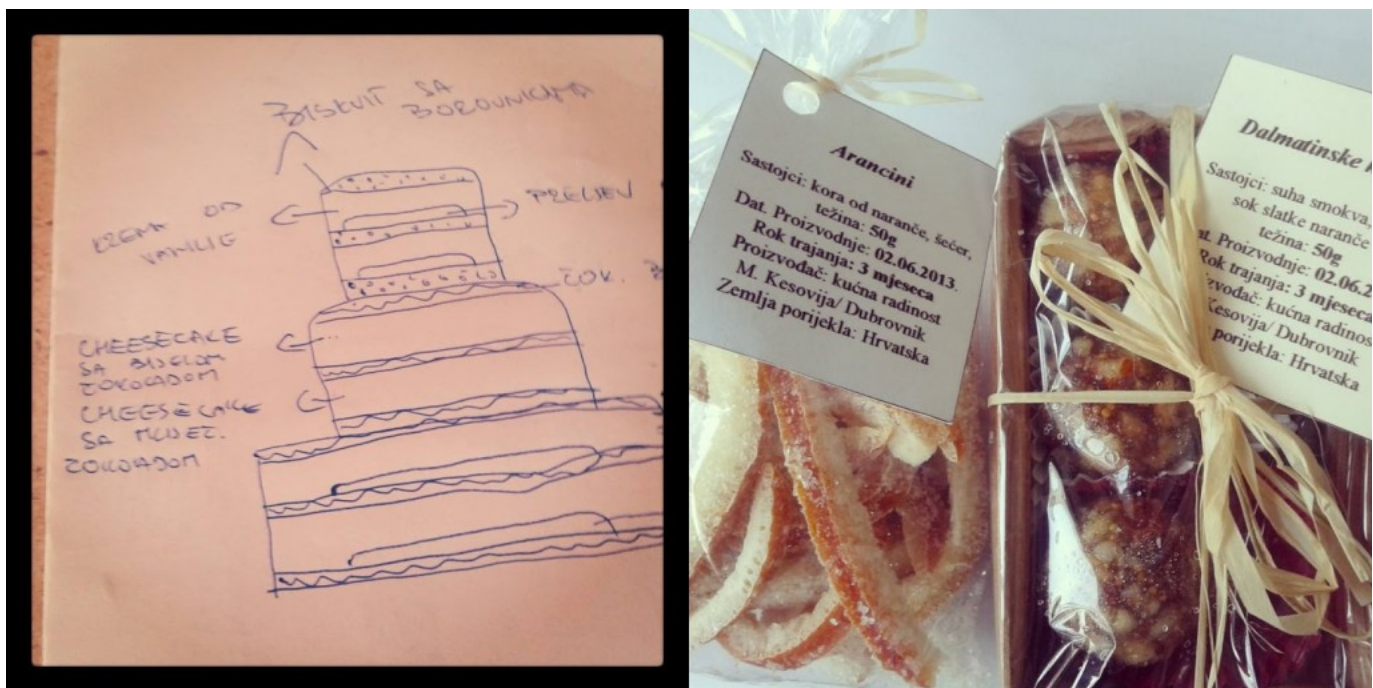 BISKVIT SA
BOROVNICAMA
KREMA OD
VANILIE
PRELJEV
ČOK.
CHEESECAKE
SA BIJELOM
ČOKOLADOM
CHEESECAKE
SA MLIJEČ.
ČOKOLADOM
Arancini
Sastojci: kora od naranče, šećer,
težina: 50g
Dat. Proizvodnje: 02.06.2013.
Rok trajanja: 3 mjeseca
Proizvođač: kućna radinost
M. Kesovija/ Dubrovnik
Zemlja porijekla: Hrvatska
Dalmatinske
Sastojci: suha smokva,
sok slatke naranče
težina: 50g
Proizvodnje: 02.06.2
Rok trajanja: 3 mjeseca
kućna radinos
Kesovija/ Dubrovnik
porijekla: Hrvatska